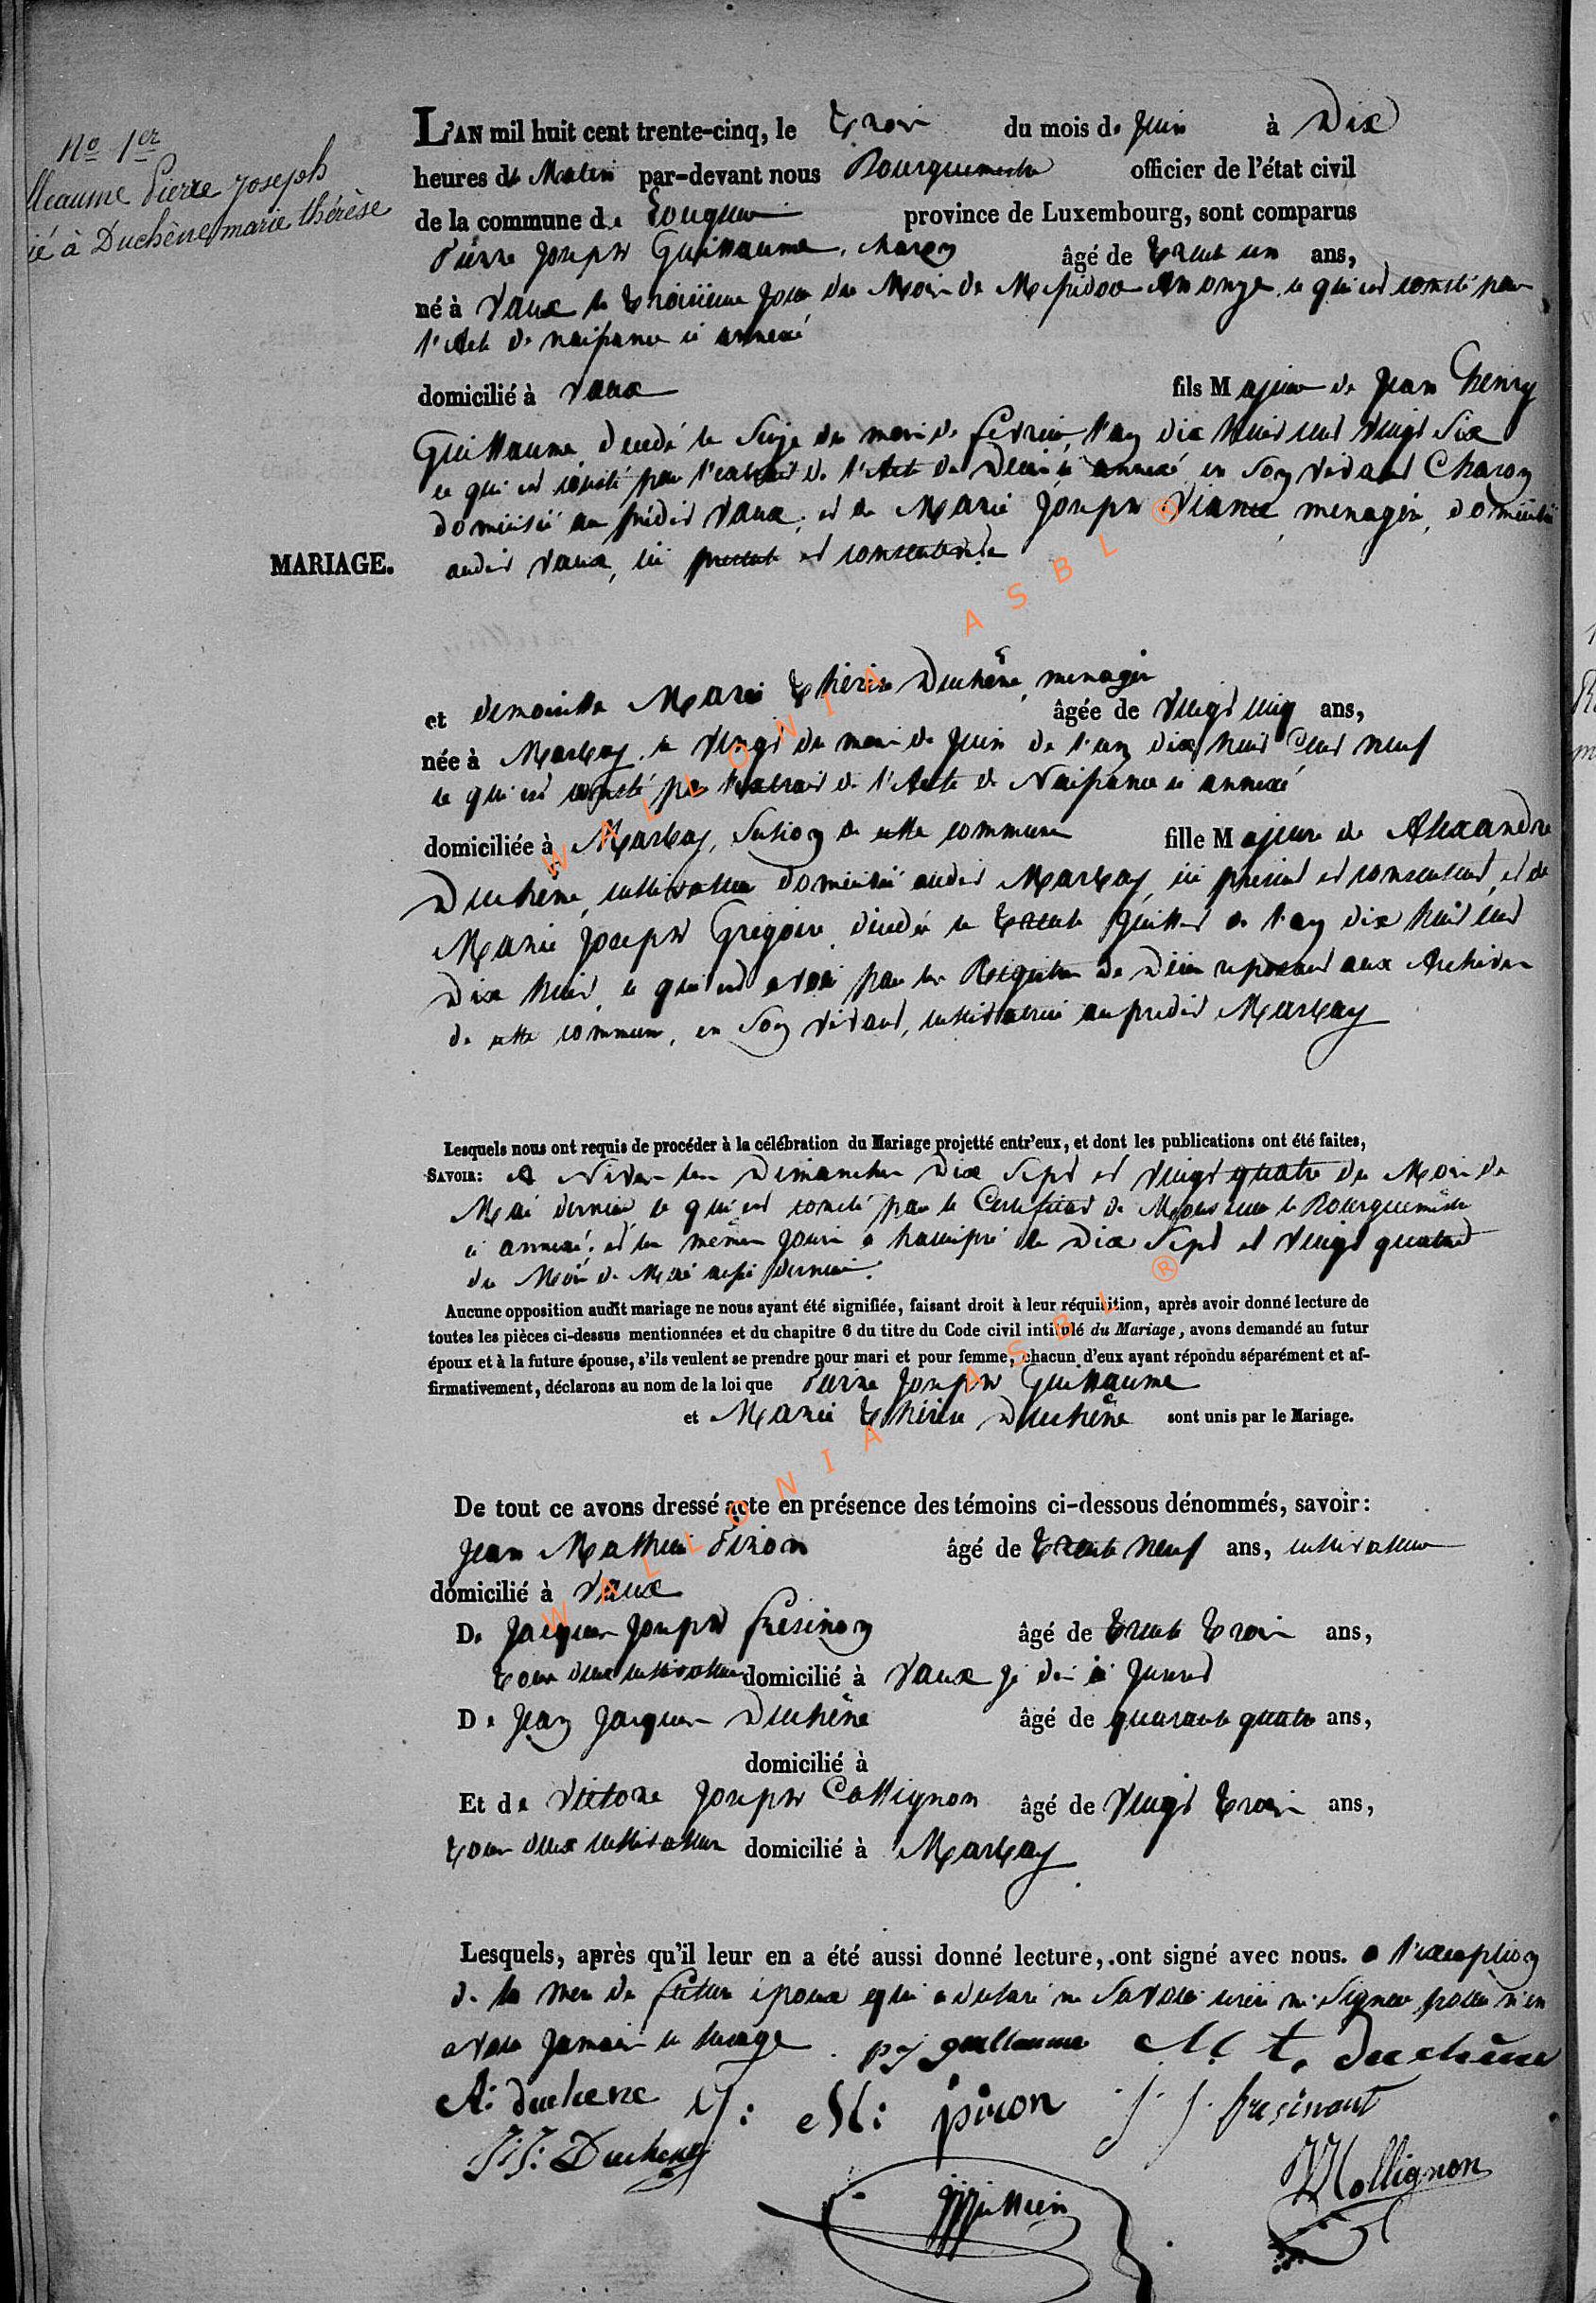 No 1er
lleaume Pierre Joseph
ié à Duchêne marie thérèse
L'AN mil huit cent trente-cinq, le Trois du mois de Juin à Dix
heures du Matin par-devant nous Bourguemestre officier de l'état civil
de la commune de province de Luxembourg, sont comparus
Pierre Joseph Guillaume, charon âgé de Trente un ans,
né à Vaux le Troisième jour du Mois de Messidor an onze, ce qui est consté par
l'Acte de naissance ci annexé
domicilié à Vaux fils Majeur de Jean Henry
Guillaume, décédé le Seize du mois de février, l'an dix huit cent vingt Six
ce qui est consté par l'extrait de l'Acte de Décès ci annexé, en son vivant Charon
domicilié au prédit Vaux, et de Marie Joseph menagère, domiciliée
MARIAGE. audit Vaux, ici présente et consentante
et demoiselle Marie Thérèse Duchêne, menagère
âgée de vingt cinq ans,
née à Marlay, le vingt du mois de Juin de l'an dix huit Cent neuf
ce qui est consté par l'extrait de l'Acte de Naissance ci annexé
domiciliée à Marlay, Section de cette commune fille Majeure de Alexandre
Duchêne, cultivateur domicilié audit Marlay, ici présent et consentant, et de
Marie Joseph Grégoire, décédée le Trente Juillet de l'an dix huit cent
Dix huit, ce qui est par les Registres de Décès reposant aux Archives
de cette commune, en son vivant, cultivatrice au prédit Marlay
Lesquels nous ont requis de procéder à la célébration du Mariage projetté entr'eux, et dont les publications ont été faites,
SAVOIR: A les Dimanches Dix Sept et vingt quatre du Mois de
Mai dernier ce qui est consté par le Certificat de Monsieur le Bourguemestre
ci annexé, et les mêmes jours à le Dix Sept et vingt quatre
du Mois de Mai aussi dernier.
Aucune opposition audit mariage ne nous ayant été signifiée, faisant droit à leur réquisition, après avoir donné lecture de
toutes les pièces ci-dessus mentionnées et du chapitre 6 du titre du Code civil intitulé du Mariage, avons demandé au futur
époux et à la future épouse, s'ils veulent se prendre pour mari et pour femme, chacun d'eux ayant répondu séparément et af-
firmativement, déclarons au nom de la loi que Pierre Joseph Guillaume
et Marie Thérèse Duchêne sont unis par le Mariage.
De tout ce avons dressé acte en présence des témoins ci-dessous dénommés, savoir:
Jean Mathieu Piron âgé de Trente neuf ans, cultivateur
domicilié à Vaux
De Jacques Joseph fresinon âgé de Trente Trois ans,
Tous deux cultivateurs domicilié à Vaux
De Jean Jacques Duchêne âgé de quarante quatre ans,
domicilié à
Et de Victore Joseph Collignon âgé de vingt Trois ans,
Tous deux cultivateurs domicilié à Marlay
Lesquels, après qu'il leur en a été aussi donné lecture, ont signé avec nous. à l'exception
de la mere du futur époux qui a déclaré ne Savoir écrire ni Signer pour n'en
avoir Jamais eu l'usage. pj guillaume M. t. duchêne
A: duchene J: M: piron j j. fresinont
J:J: Duchene
VJCollignon
WALLONIA ASBL ®
WALLONIA ASBL ®